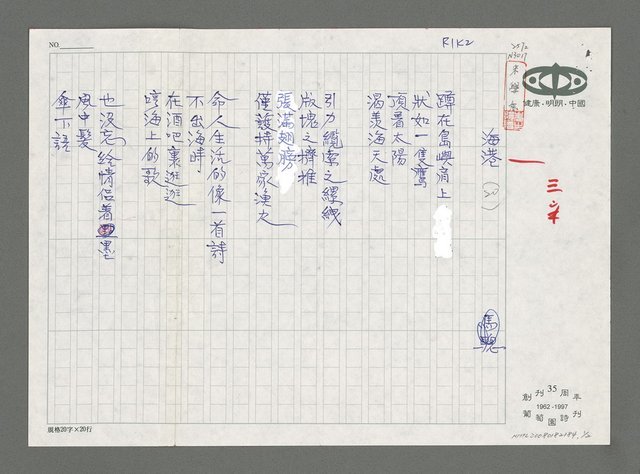 NO.
R1K2
健康·明朗·中國
三
海港
蹲在島嶼肩上
狀如一隻鷹
頂著太陽
渴羨海天處
引力纜索之縲絏
版塊之擠推
張滿翅膀
僅護持萬家漁火
命人生流的像一首詩
不出海時
在酒吧裏逛逛
哼海上的歌
也沒忘給情侶着墨
風中髮
傘下語
創刊35周年
1962-1997
葡萄園詩刊
規格20字×20行